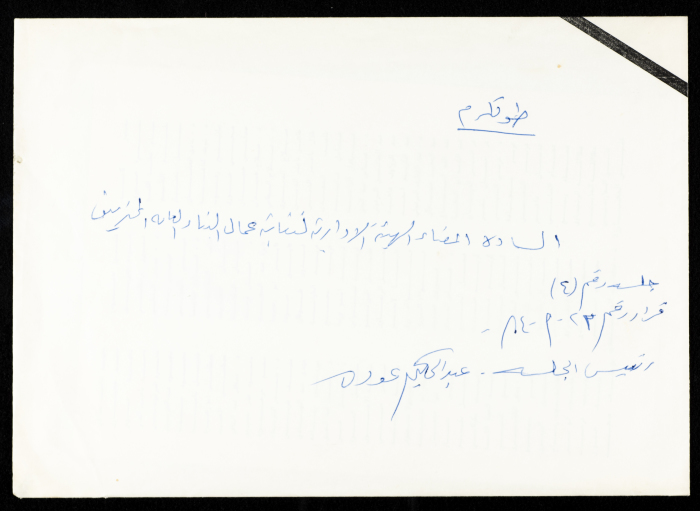 طولكرم
السادة اعضاء الهيئة الادارية لنقابة عمال البناء العامه المحترمين
جلسه رقم (٤)
قرار رقم ٢٣-٩-٨٤-
رئيس الجلسه - عبد الحكيم عوده